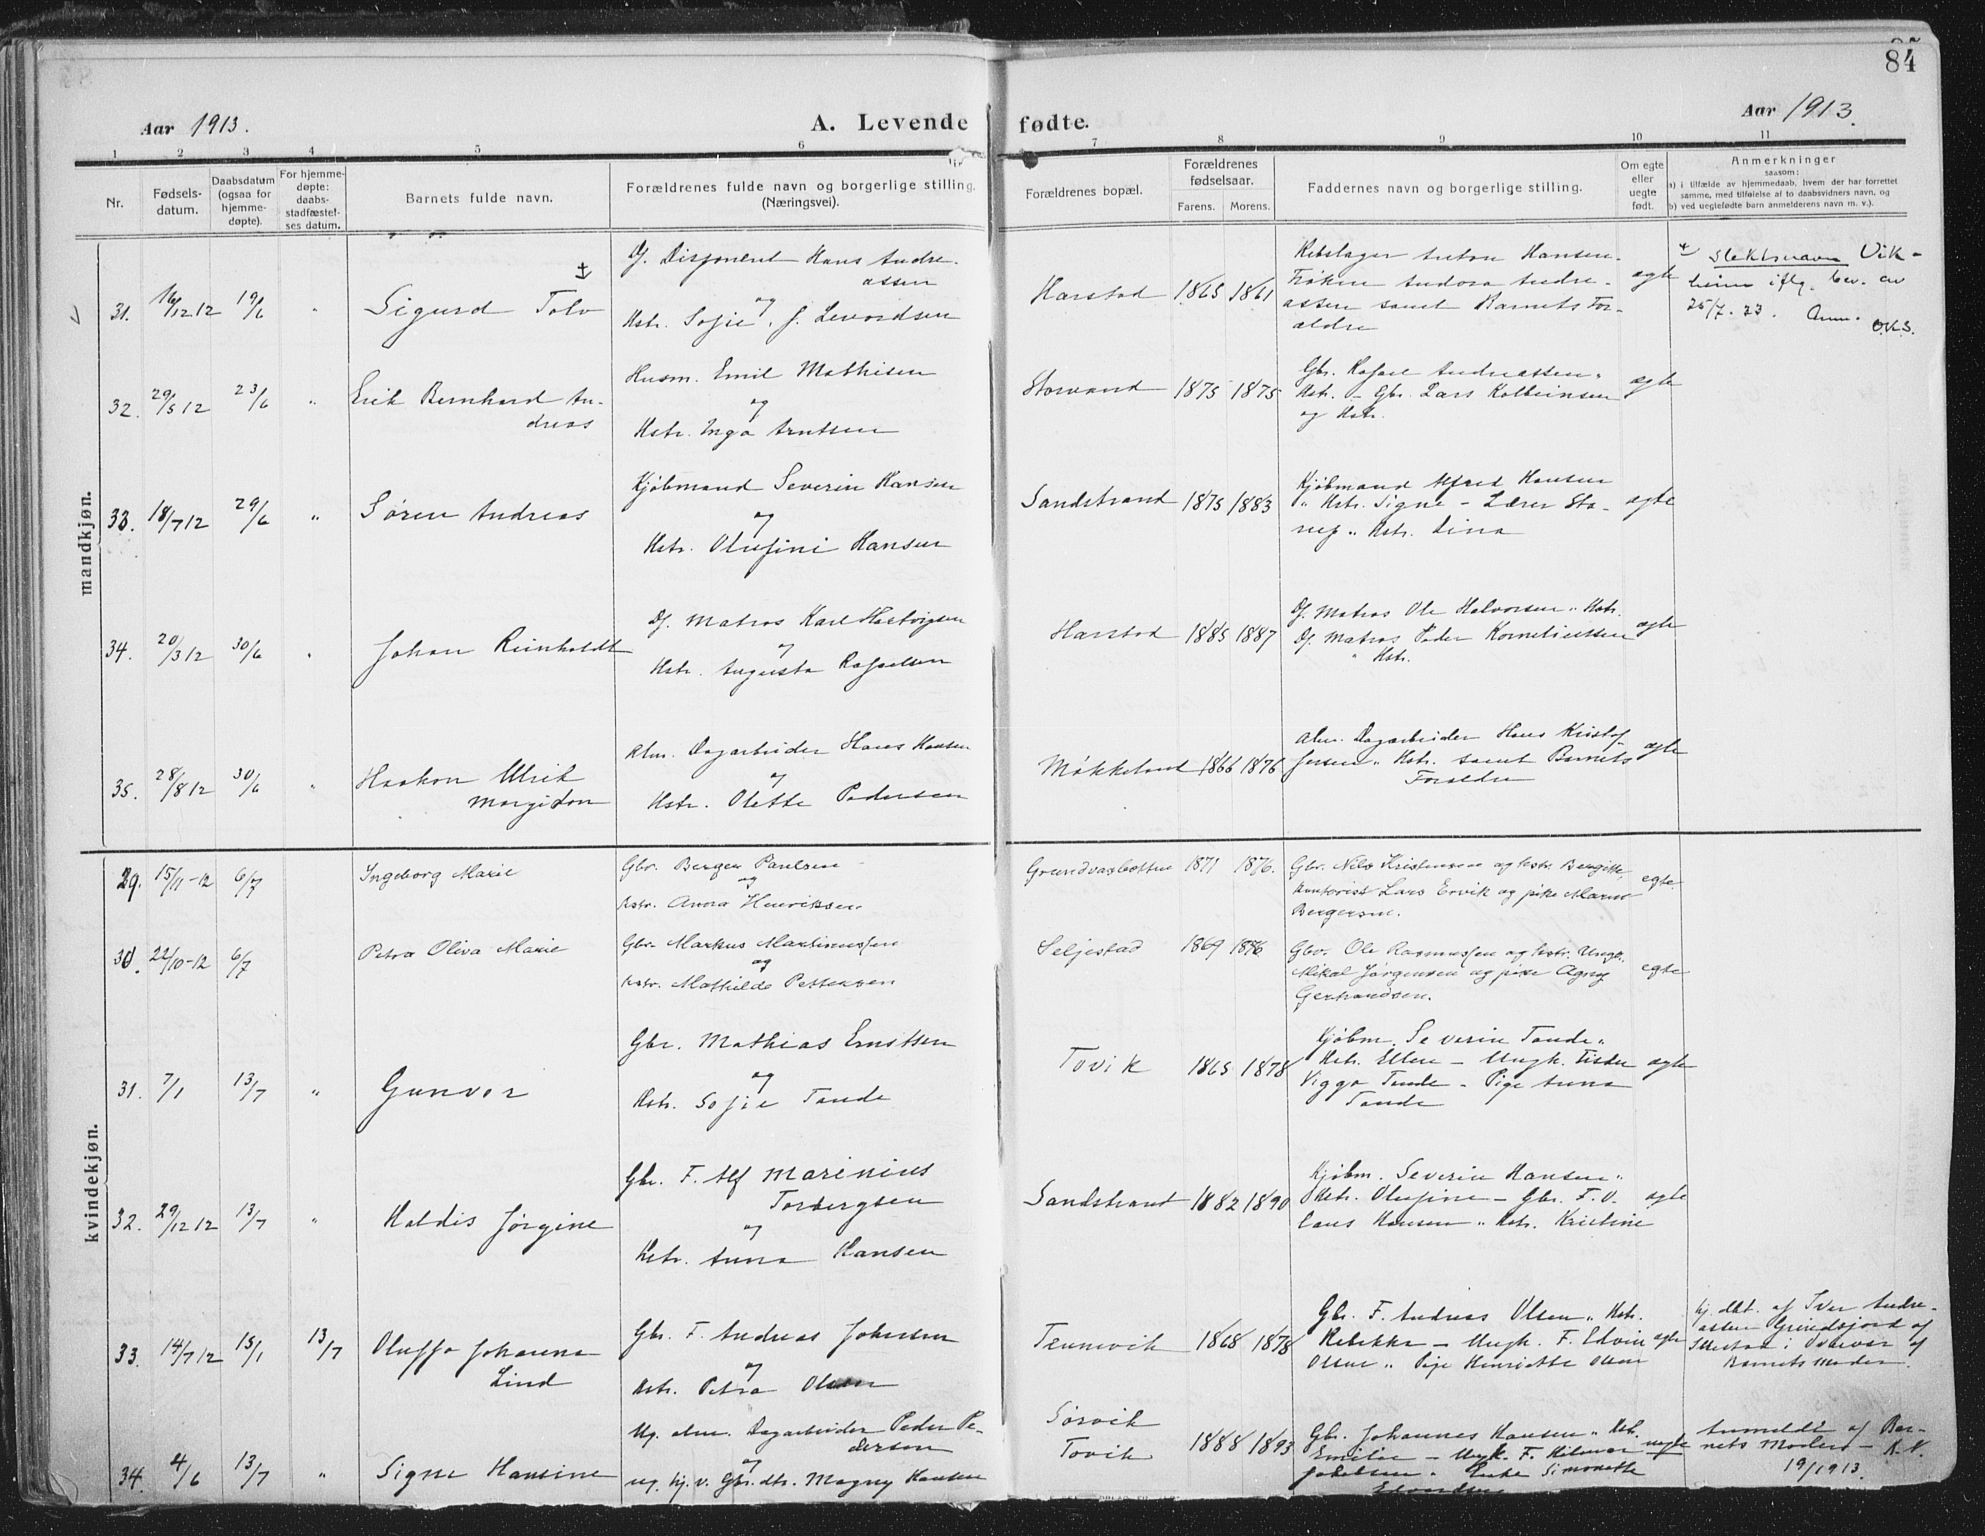 84
Aar 1913.
A. Levende fødte.
Aar 1913.
1 2 3 4 5 6 7 8 9 10 11
Nr.
Fødsels-
datum.
Daabsdatum
(ogsaa for
hjemme-
døpte).
For hjemme-
døpte:
daabs-
stadfæstel-
ses datum.
Barnets fulde navn.
Forældrenes fulde navn og borgerlige stilling.
(Næringsvei).
Forældrenes bopæl.
Forældrenes
fødselsaar.
Farens. Morens.
Faddernes navn og borgerlige stilling.
Om egte
eller
uegte
født.
Anmerkninger
saasom:
a) i tilfælde av hjemmedaab, hvem der har forrettet
samme, med tilføielse af to daabsvidners navn, og
b) ved uegtefødte barn anmelderens navn m. v.).
mandkjøn.
31. 16/12 12 19/6 " Sigurd Tolv
Df. Disponent Hans Andre-
assen
og
Hstr. Sofie. J. Levordsen
Harstad 1865 1861
Rebslager Anton Hansen-
Frøken Andora Andre-
assen samt Barnets For-
ældre
ægte
Slektsnavn Vik-
heim iflg. bev. av
25/7. 23. Anm. O.K.S.
32. 29/5 12 23/6 " Erik Bernhard An-
dreas
Husm. Emil Mathisen
og
Hstr. Inga Arntsen
Storvand 1875 1875
Gbr. Rafael Andreassen "
Hstr. - Gbr. Lars Kolbeinsen
og Hstr.
ægte
33. 18/7 12 29/6 " Søren Andreas
Kjøbmand Severin Hansen
og
Hstr. Olufine Hansen
Sandstrand 1875 1883
Kjøbmand Alfred Hansen
" Hstr. Signe - Lærer Sta-
nes " Hstr. Lina
ægte
34. 20/3 12 30/6 " Johan Reinholdt
Df. Matros Karl Hartvigsen
og
Hstr. Augusta Rafaelsen
Harstad 1885 1887
Df. Matros Ole Halvorsen " Hstr.
Df. Matros Peder Korneliussen
" Hstr.
ægte
35. 28/8 12 30/6 " Haakon Ulrik
Margidon
Alm. Dagarbeider Hans Hansen
og
Hstr. Olette Pedersen
Møkkeland 1866 1876
Alm. Dagarbeider Hans Kristof-
fersen " Hstr. samt Barnets
Forældre
ægte
kvindekjøn.
29. 15/11-12 6/7 Ingeborg Marie
Gbr. Berger Paulsen
og
hstr. Anna Henriksen.
Grundvasbotten 1871 1876.
Gbr. Nils Kristensen og hstr. Bergitte,
kontorist Lars Ervik og pike Marie
Bergersen.
egte.
30. 22/10-12 6/7 Petra Oliva Marie
Gbr. Markus Martinussen
og
hstr. Mathilde Pettersen
Seljestad 1869 1876
Gbr. Ole Rasmussen og hstr. Ungk.
Mikal Jørgensen og pike Agny
Gerhardsen.
egte
31. 7/1 13/7 " Gunvor
Gbr. Mathias Ernstsen
og
Hstr. Sofie Tande
Tovik 1865 1878
Kjøbm. Severin Tande "
Hstr. Ellen - Ungk. Fisker
Viggo Tande - Pige Anna
Tande
ægte
32. 29/12 12 13/7 " Haldis Jørgine
Gbr. F. Alf Marinius
Torbergsen
og
Hstr. Anna Hansen
Sandstrand 1882 1890
Kjøbm. Severin Hansen "
Hstr. Olufine - Gbr. F. V.
Laus Hansen " Hstr. Kristine
ægte
33. 14/7 12 15/1 13/7 Oluffa Johanna
Lind
Gbr. F. Andreas Johnsen
og
Hstr. Petra Olsen
Tennevik 1868 1878
Gbr. F. Andreas Olsen " Hstr.
Rebekka - Ungk. F. Edvin
Olsen " Pige Henriette Olsen
ægte
Hj. dbt. af Iver Andre-
assen Grindfjord af
Barnets Moder.
34. 4/6 13/7 " Signe Hansine
Ug. alm. Dagarbeider Peder Pe-
dersen
og
ug. hj. v. Gbr. dtr. Magny Hansen
Sørvik
Tovik 1888 1893
Gbr. Johannes Hansen " Hstr.
Emilie - Ungk. F. Hilmar
Jakobsen " Enke Simonette
Edvardsen
uegte
Anmeldt af Bar-
nets Moder -
19/1913.